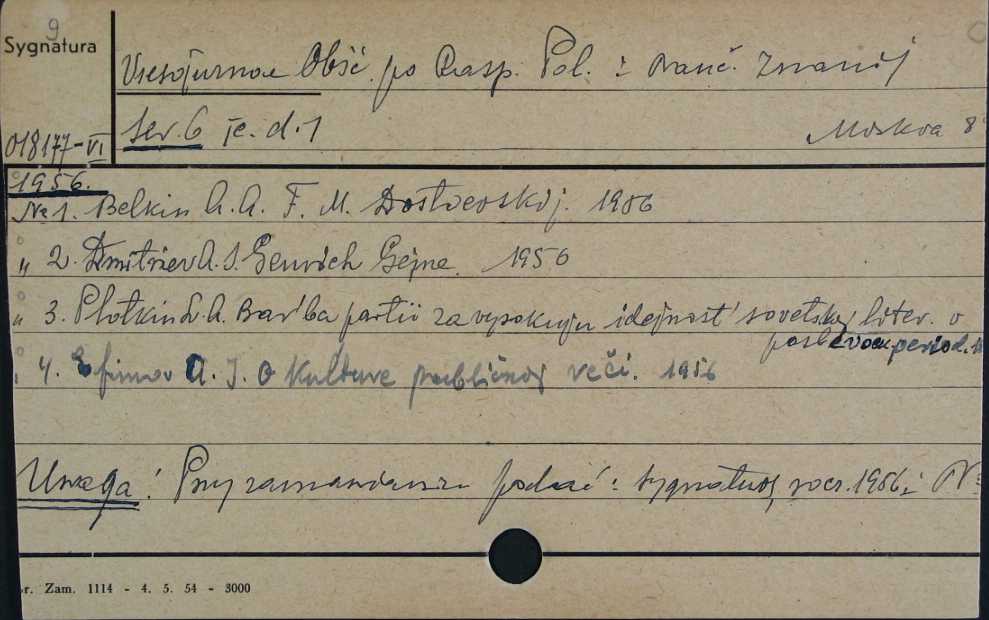 9
Sygnatura
Vsesojuznoe Obšč. po Rasp. Pol. i Nauč. Znanij
018177-VI
Ser. 6 Te. d. 1 Moskva 8°
1956.
№ 1. Belkin A. A. F. M. Dostoevskij. 1956
„ 2. Dmitriev A. S. Genrich Gejne. 1956
„ 3. Plotkin L. A. Bor'ba partii za vysokuju idejnost' sovetskoj liter. v
poslevoen. period.
„ 4. Efimov A. I. O kul'ture publičnoj reči. 1956
Uwaga! Przy zamawianiu podać: sygnaturę, rocz. 1956 i №
r. Zam. 1114 - 4. 5. 54 - 3000